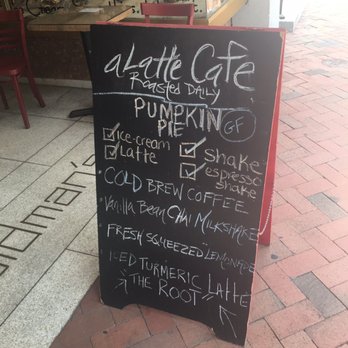 aLatte Cafe
Roasted DAILY
PUMPKIN
PIE GF
ice-cream
Latte
Shake
espresso
shake
COLD BREW COFFEE
Vanilla Bean Chai Milkshake
FRESH SQUEEZED LEMONADE
ICED TURMERIC Latte
"THE ROOT"
idman's